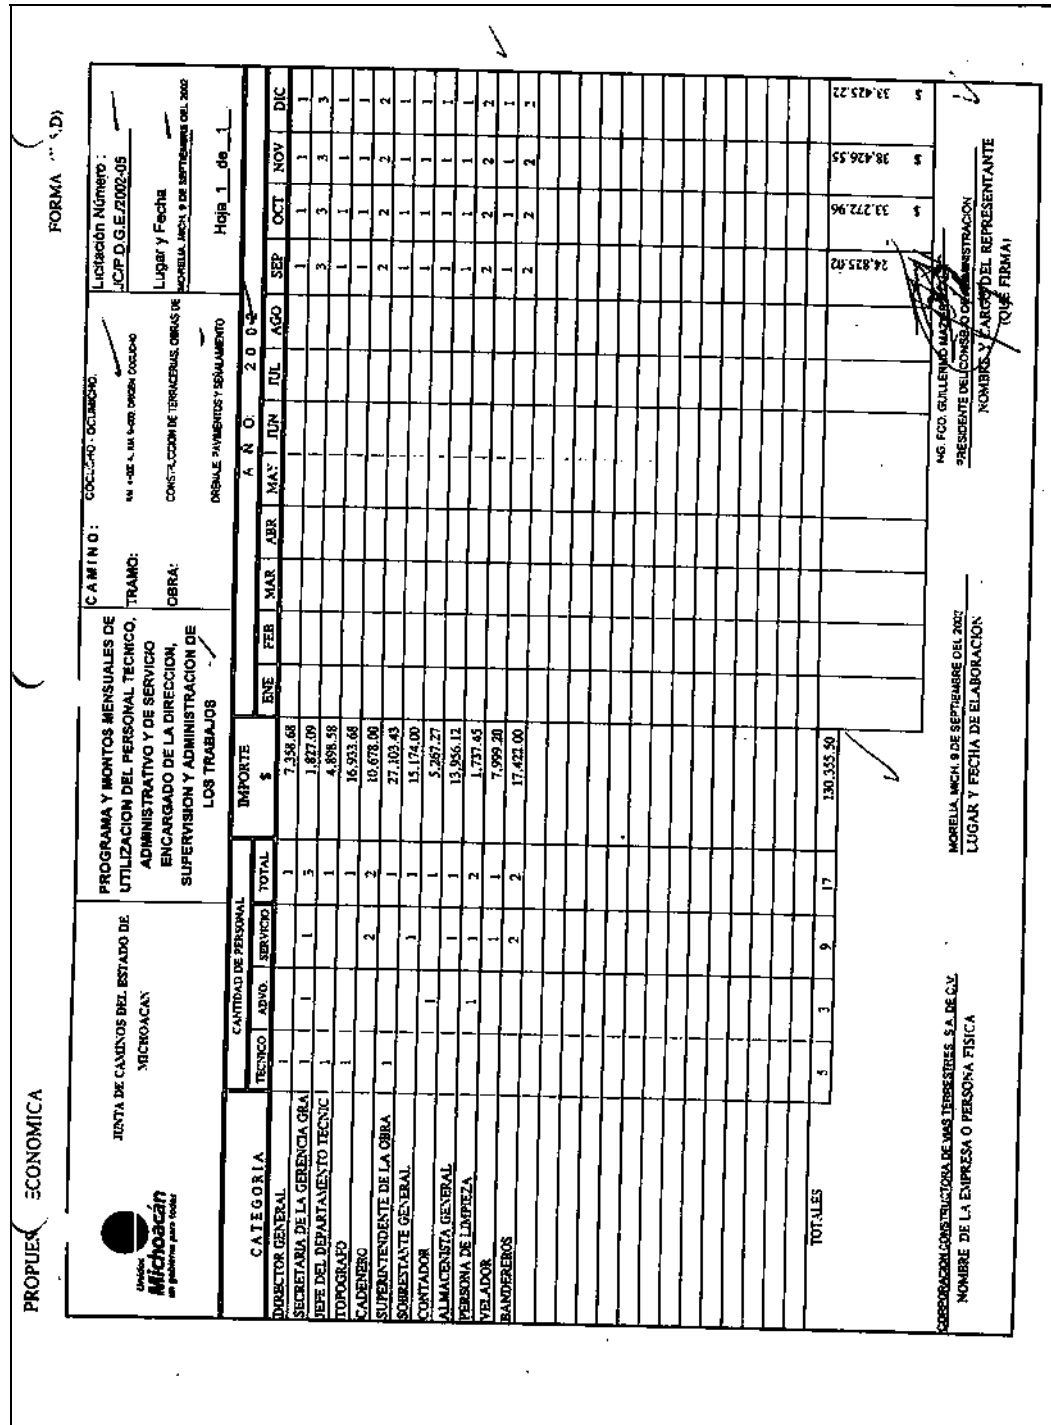 PROPUES ECONOMICA
FORMA
Unidos
Michoacán
un gobierno para todos
JUNTA DE CAMINOS DEL ESTADO DE
MICHOACAN
PROGRAMA Y MONTOS MENSUALES DE
UTILIZACION DEL PERSONAL TECNICO,
ADMINISTRATIVO Y DE SERVICIO
ENCARGADO DE LA DIRECCION,
SUPERVISION Y ADMINISTRACION DE
LOS TRABAJOS
CAMINO: COCUCHO - OCUMICHO.
TRAMO: ORIGEN COCUCHO
OBRA: CONSTRUCCION DE TERRACERIAS, OBRAS DE
DRENAJE, PAVIMENTOS Y SEÑALAMIENTO
Licitación Número :
JC/P.D.G.E./2002-05
Lugar y Fecha
MORELIA, MICH. 9 DE SEPTIEMBRE DEL 2002
Hoja 1 de 1
CATEGORIA CANTIDAD DE PERSONAL IMPORTE AÑO: 2002
TECNICO ADVO. SERVICIO TOTAL $ ENE FEB MAR ABR MAY JUN JUL AGO SEP OCT NOV DIC
DIRECTOR GENERAL 1 1 7,358.68 1 1 1 1
SECRETARIA DE LA GERENCIA GRAL 1 1 1 3 1,827.09 3 3 3 3
JEFE DEL DEPARTAMENTO TECNIC 1 1 4,898.58 1 1 1 1
TOPOGRAFO 1 1 16,933.68 1 1 1 1
CADENERO 2 2 10,678.00 2 2 2 2
SUPERINTENDENTE DE LA OBRA 1 1 27,103.43 1 1 1 1
SOBRESTANTE GENERAL 1 1 15,174.00 1 1 1 1
CONTADOR 1 1 5,267.27 1 1 1 1
ALMACENISTA GENERAL 1 1 13,956.12 1 1 1 1
PERSONA DE LIMPIEZA 1 1 2 1,737.45 2 2 2 2
VELADOR 1 1 7,999.20 1 1 1 1
BANDEREROS 2 2 17,422.00 2 2 2 2
TOTALES 5 3 9 17 130,355.50 24,825.02 $ 33,272.96 $ 38,426.55 $ 33,425.22
CORPORACION CONSTRUCTORA DE VIAS TERRESTRES S.A. DE C.V.
NOMBRE DE LA EMPRESA O PERSONA FISICA
MORELIA, MICH. 9 DE SEPTIEMBRE DEL 2002
LUGAR Y FECHA DE ELABORACION
ING. FCO. GUILLERMO
PRESIDENTE DEL CONSEJO DE ADMINISTRACION
NOMBRE Y CARGO DEL REPRESENTANTE
(QUE FIRMA)